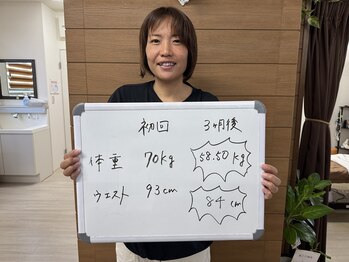 初回 3ヶ月後
体重 70kg 58.50kg
ウエスト 93cm 84cm